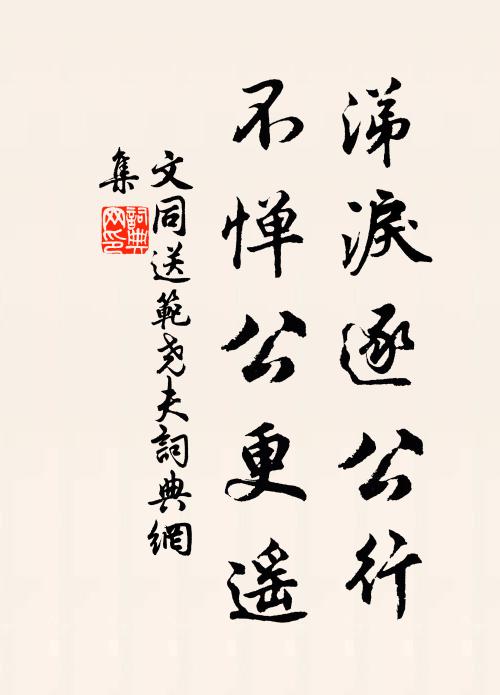 涕淚逐公行
不惮公更遥
文同送範尧夫詞典網
集
詞典网印